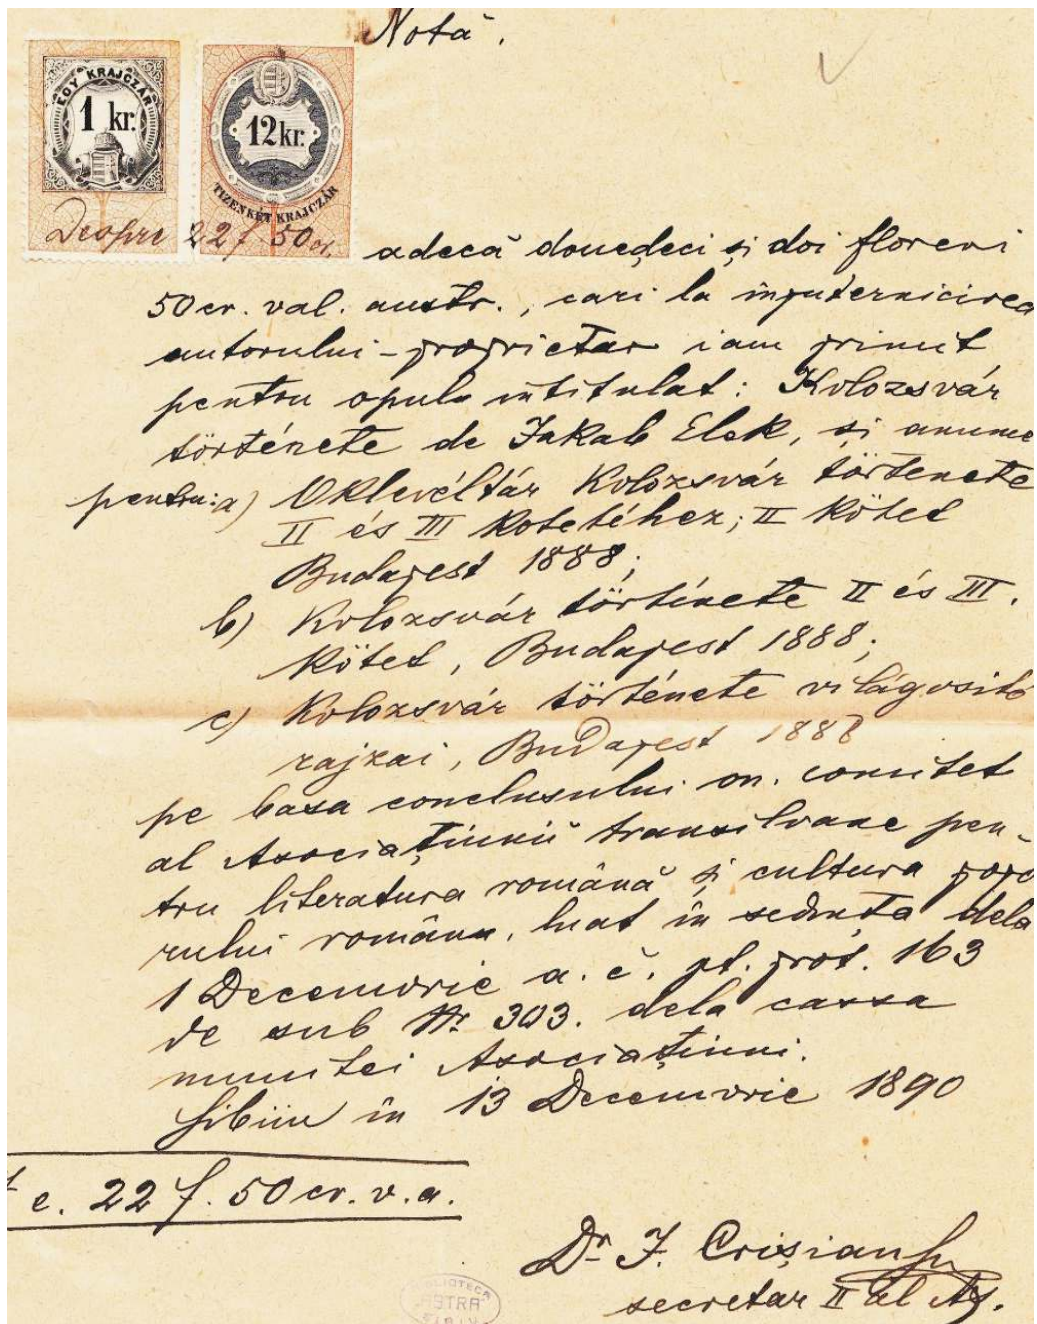 Notă.
EGY KRAJCZÁR
1 kr.
12 kr.
TIZENKÉT KRAJCZÁR
Despre 22 f. 50 cr. adecă douedeci și doi floreni
50 cr. val. austr., cari la împuternicirea
autorului-proprietar iam primit
pentru opul intitulat: Kolozsvár
története de Jakab Elek, și anume
pentru: a) Oklevéltár Kolozsvár története
II és III kötetéhez; II kötet
Budapest 1888;
b) Kolozsvár története II és III.
kötet, Budapest 1888;
c) Kolozsvár története világositó
rajzai, Budapest 1888
pe basa conclusului on. comitet
al Asociațiunii transilvane pen-
tru literatura română și cultura popo
rului român, luat în ședința dela
1 Decemvrie a. c. pt. prot. 163
de sub Nr. 303. dela cassa
numitei Asociațiuni.
Sibiiu în 13 Decemvrie 1890
e. 22 f. 50 cr. v. a.
Dr. I. Crișianu
secretar II al As.
BIBLIOTECA
ASTRA
SIBIU